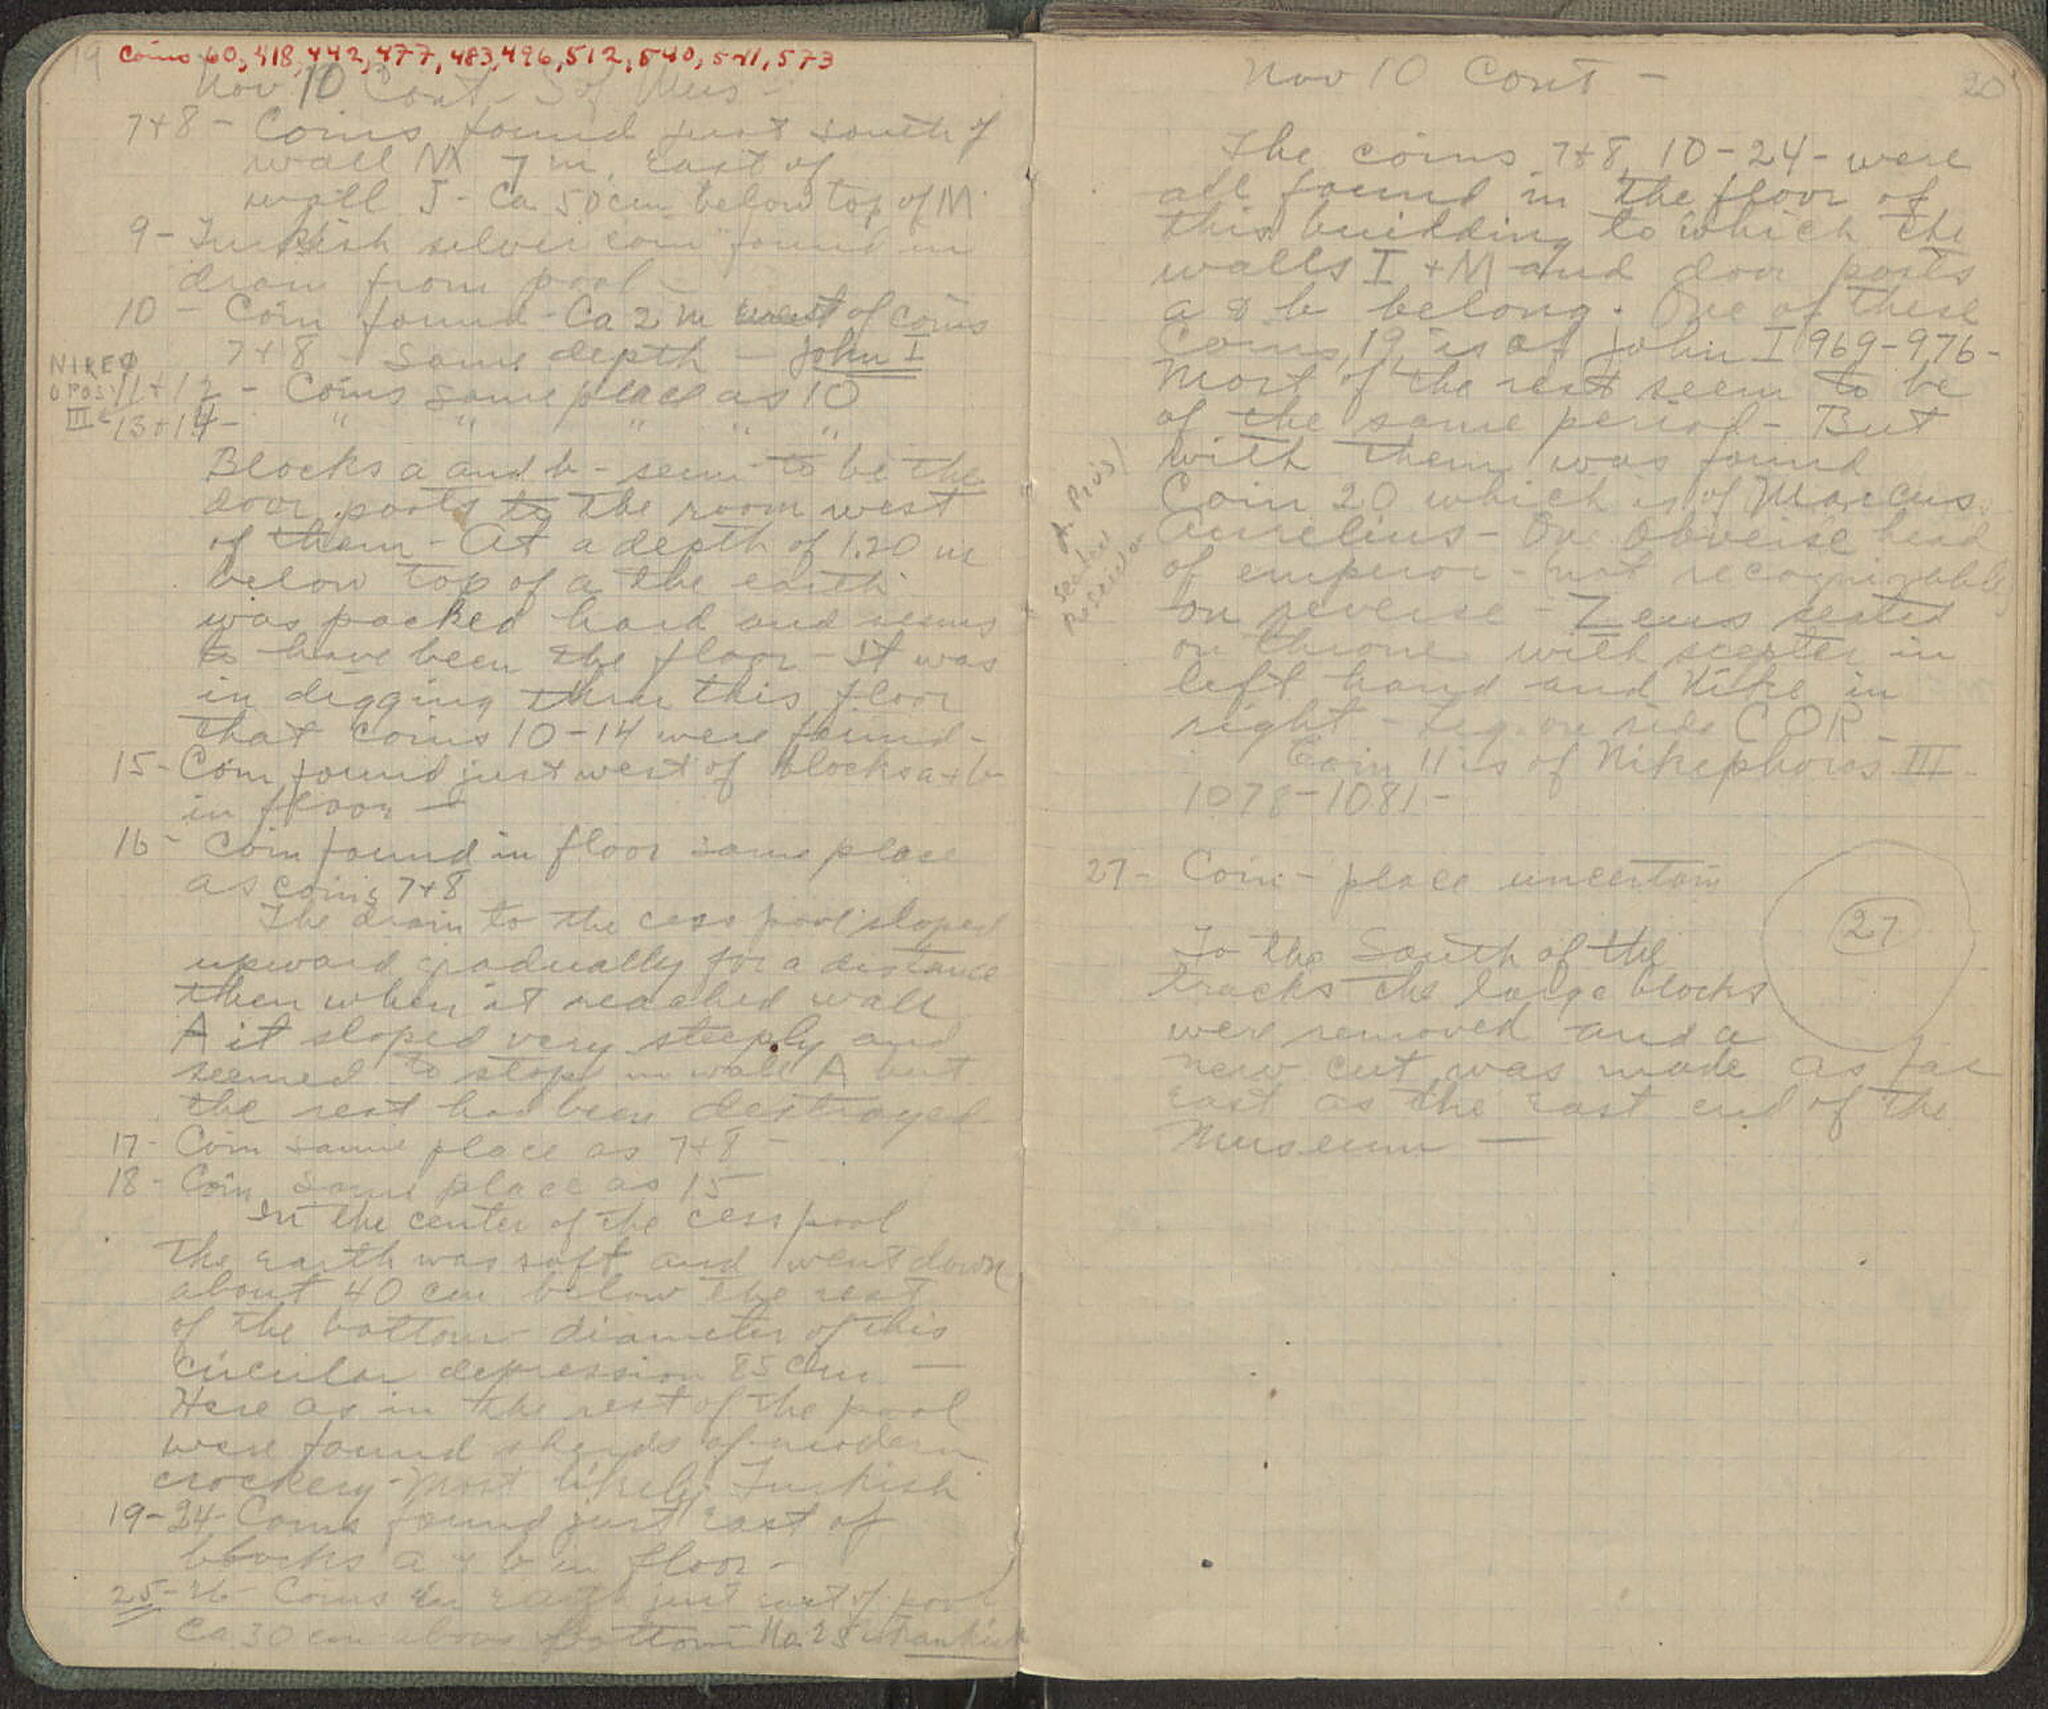 19
Coins 60, 418, 442, 477, 483, 496, 512, 540, 541, 573
Nov 10 Cont - S of Mus -
7+8 - Coins found just south of
wall M 7 m. east of
wall J - Ca 50 cm below top of M.
9 - Turkish silver coin found in
drain from pool -
10 - Coin found - Ca 2 m west of coins
7+8 - Same depth - John I
NIKEΦ
OPOS
III
11+12 - Coins same place as 10
13+14 - " " " " "
Blocks a and b - seem to be the
door posts to the room west
of them - At a depth of 1.20 m
below top of a the earth
was packed hard and seems
to have been the floor - It was
in digging thru this floor
that coins 10-14 were found -
15 - Coin found just west of blocks a+b
in floor -
16 - Coin found in floor same place
as coins 7+8
The drain to the cess pool sloped
upward gradually for a distance
then when it reached wall
A it sloped very steeply and
seemed to stop in wall A but
the rest had been destroyed
17 - Coin same place as 7+8 -
18 - Coin same place as 15
In the center of the cess pool
the earth was soft and went down
about 40 cm below the rest
of the bottom diameter of this
circular depression 85 cm -
Here as in the rest of the pool
were found sherds of modern
crockery - Most likely Turkish
19-24 - Coins found just east of
blocks a & b in floor -
25-26 Coins in earth just east of pool
Ca 30 cm above bottom No 25 is
Nov 10 Cont -
20
The coins 7+8, 10-24 - were
all found in the floor of
this building to which the
walls I + M and door posts
a & b belong. One of these
Coins, 19, is of John I 969-976 -
Most of the rest seem to be
of the same period - But
with them was found
Coin 20 which is of Marcus
Aurelius - On Obverse head
of emperor - not recognizable
on reverse - Zeus seated
on throne with scepter in
left hand and Nike in
right - Leg. on side COR -
A. Pius/
Coin 11 is of Nikephoros III -
1078-1081 -
27 - Coin - place uncertain
27
To the South of the
tracks the large blocks
were removed and a
new cut was made as far
east as the east end of the
Museum -